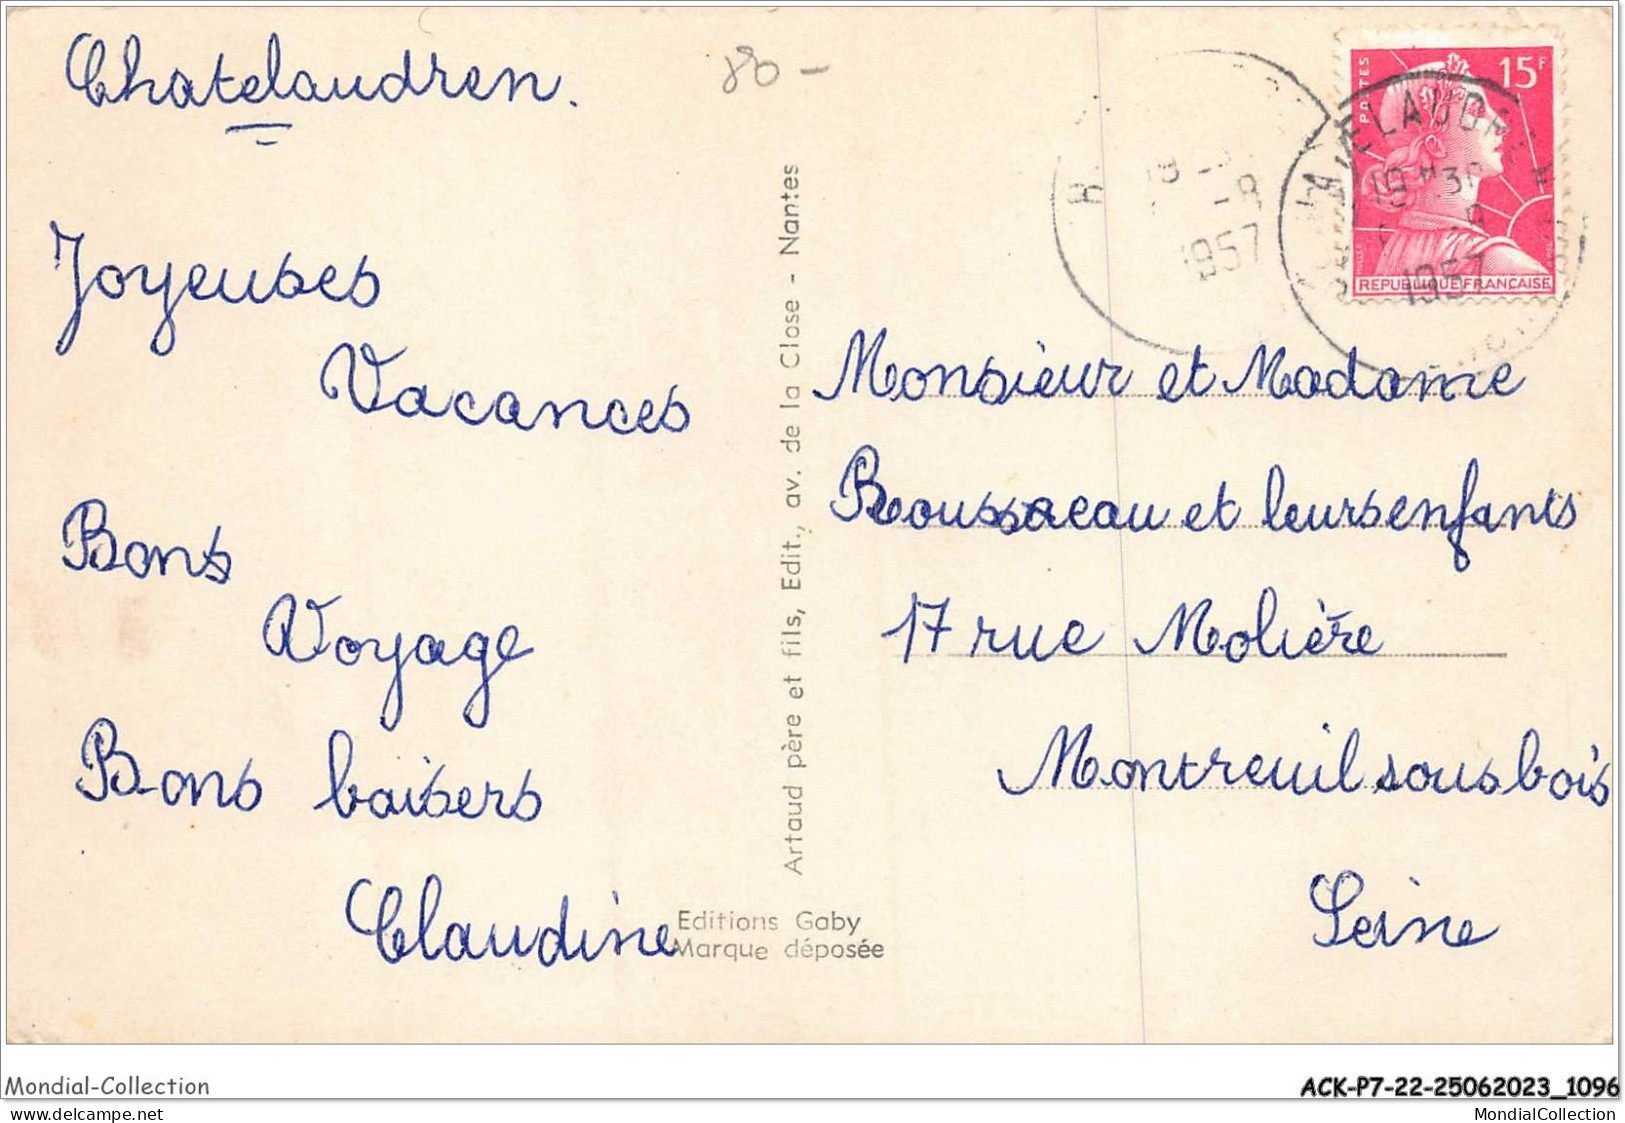 Chatelaudren.
80 -
Joyeuses
Vacances
Bons
Voyage
Bons baisers
Claudine
Artaud père et fils, Edit., av. de la Close - Nantes
Editions Gaby
Marque déposée
1957
POSTES
15F
REPUBLIQUE FRANÇAISE
19H30
1957
Monsieur et Madame
Rousseau et leurs enfants
17 rue Molière
Montreuil sous bois
Seine
Mondial-Collection
ACK-P7-22-25062023_1096
delcampe.net
MondialCollection